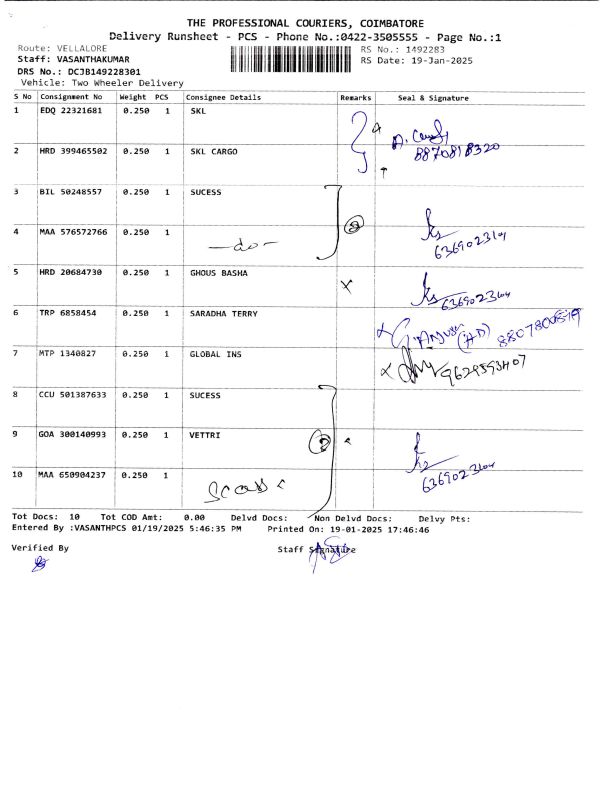 THE PROFESSIONAL COURIERS, COIMBATORE
Delivery Runsheet - PCS - Phone No.:0422-3505555 - Page No.:1
Route: VELLALORE
RS No.: 1492283
Staff: VASANTHAKUMAR
RS Date: 19-Jan-2025
DRS No.: DCJB149228301
Vehicle: Two Wheeler Delivery
S No Consignment No Weight PCS Consignee Details Remarks Seal & Signature
1 EDQ 22321681 0.250 1 SKL
8870818320
2 HRD 399465502 0.250 1 SKL CARGO
3 BIL 50248557 0.250 1 SUCESS
4 MAA 576572766 0.250 1 -do-
5 HRD 20684730 0.250 1 GHOUS BASHA
6 TRP 6858454 0.250 1 SARADHA TERRY
7 MTP 1340827 0.250 1 GLOBAL INS
9629593407
8 CCU 501387633 0.250 1 SUCESS
9 GOA 300140993 0.250 1 VETTRI
10 MAA 650904237 0.250 1
Tot Docs: 10 Tot COD Amt: 0.00 Delvd Docs: Non Delvd Docs: Delvy Pts:
Entered By :VASANTHPCS 01/19/2025 5:46:35 PM Printed On: 19-01-2025 17:46:46
Verified By Staff Signature